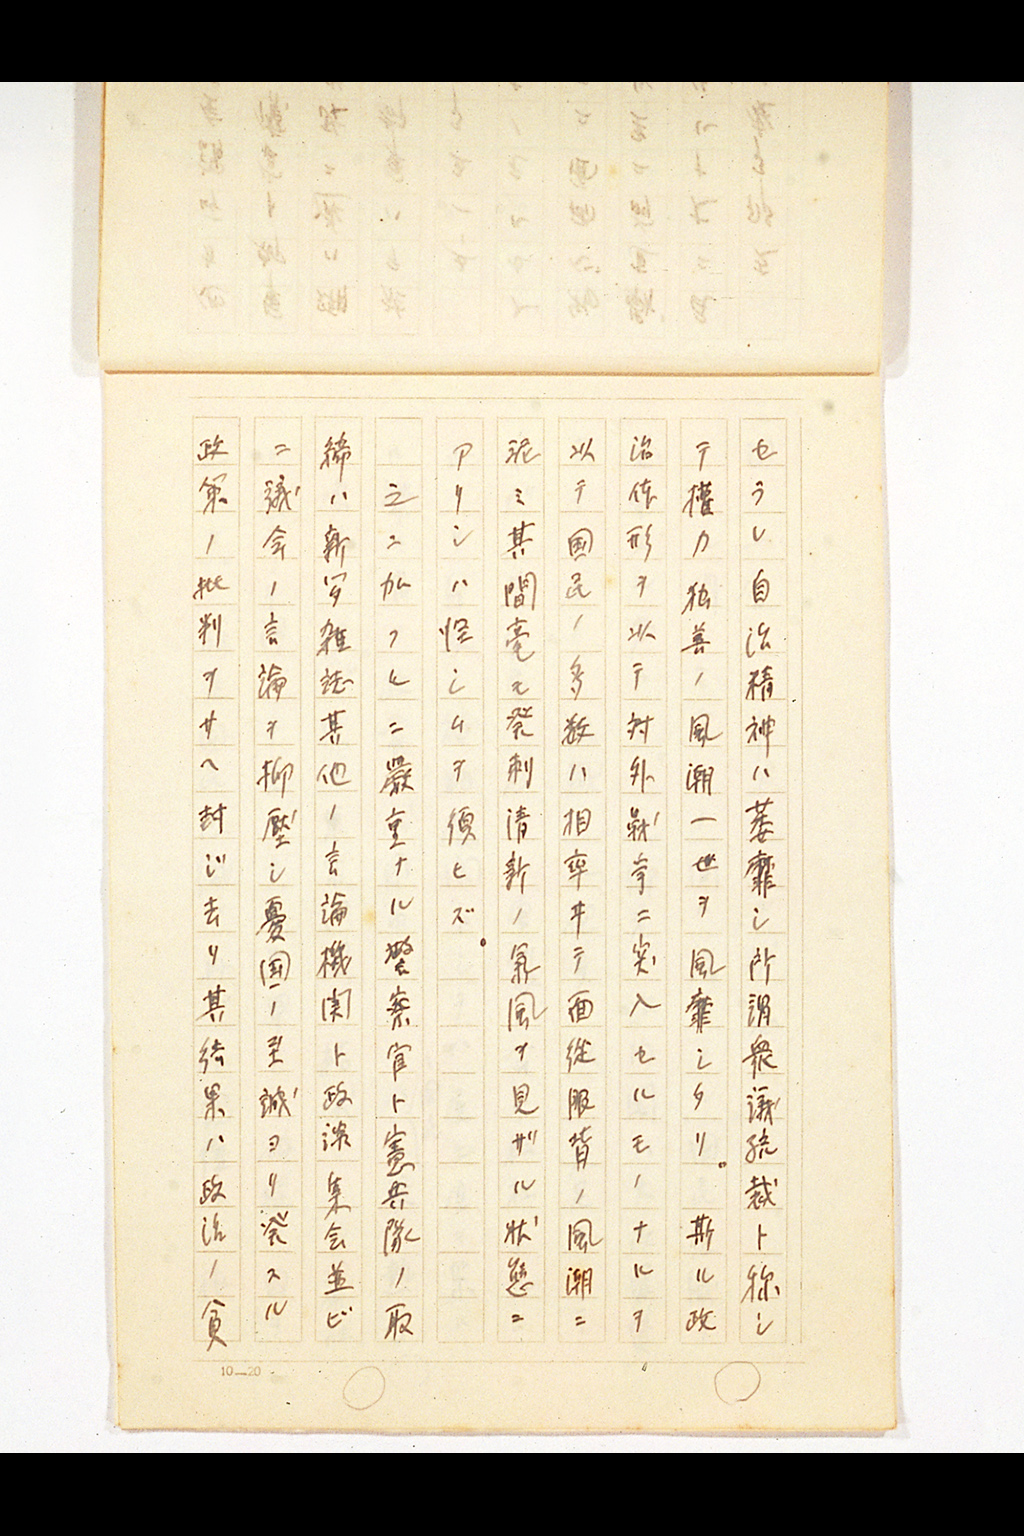 セラレ自治精神ハ萎靡シ所謂衆議統裁ト称シ
テ權力独善ノ風潮一世ヲ風靡シタリ。斯ル政
治体形ヲ以テ対外戦争ニ突入セルモノナルヲ
以テ国民ノ多数ハ相率ヰテ面従服背ノ風潮ニ
泥ミ其間毫モ発剌清新ノ氣風ヲ見ザル状態ニ
アリシハ怪シムヲ須ヒズ。
之ニ加フルニ嚴重ナル警察官ト憲兵隊ノ取
締ハ新聞雑誌其他ノ言論機関ト政談集会並ビ
ニ議会ノ言論ヲ抑壓シ憂国ノ至誠ヨリ発スル
政策ノ批判ヲサヘ封ジ去リ其結果ハ政治ノ貧
10—20